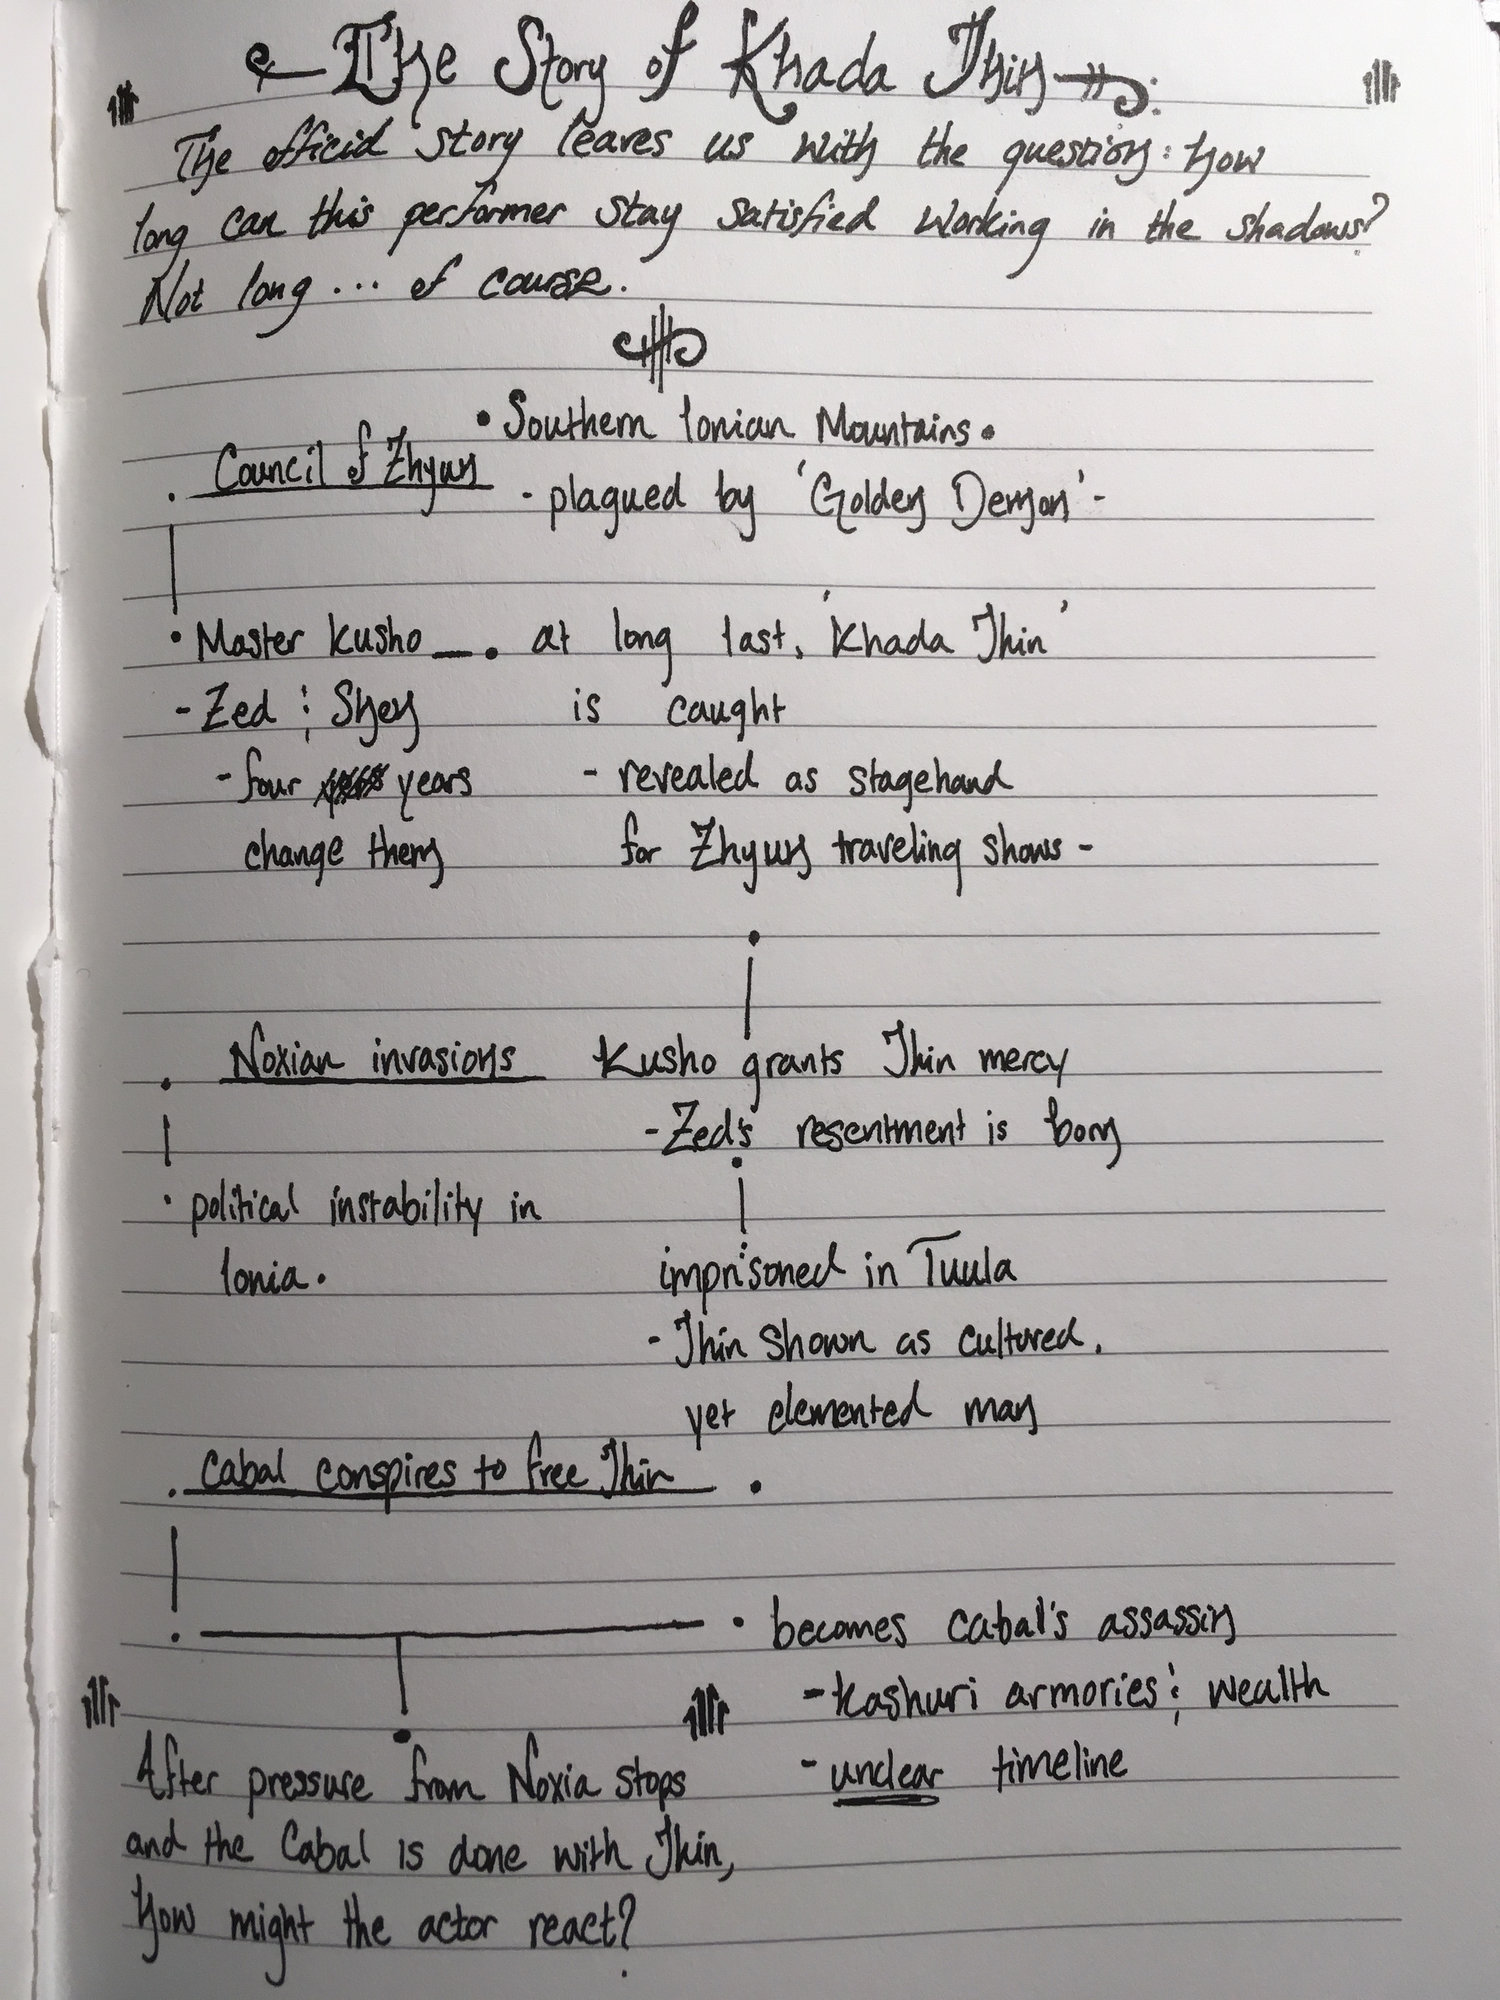 The Story of Khada Jhin
The official story leaves us with the question: how
long can this performer stay satisfied working in the shadows?
Not long ... of course.
• Southern Ionian Mountains •
Council of Zhyun
- plagued by 'Golden Demon' -
• Master Kusho — • at long last, 'Khada Jhin'
- Zed & Shen
is caught
- four years
- revealed as stagehand
change them
for Zhyun traveling shows -
Noxian invasions
Kusho grants Jhin mercy
- Zed's resentment is born
• political instability in
Ionia.
imprisoned in Tuula
- Jhin shown as cultured,
yet demented man
Cabal conspires to free Jhin
• becomes cabal's assassin
- Kashuri armories & wealth
- unclear timeline
After pressure from Noxia stops
and the Cabal is done with Jhin,
how might the actor react?